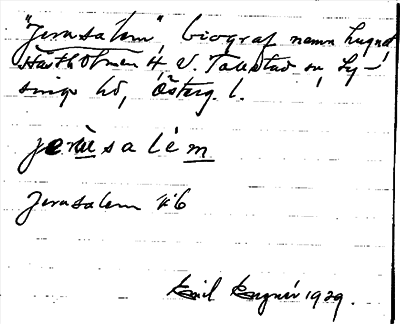 "Jerusalem", biograf namn
Hästholmen 4 V. Tollstad sn, Ly-
sings hd, Österg. l.
jerusalém
Jerusalem 1:6
Emil 1929.